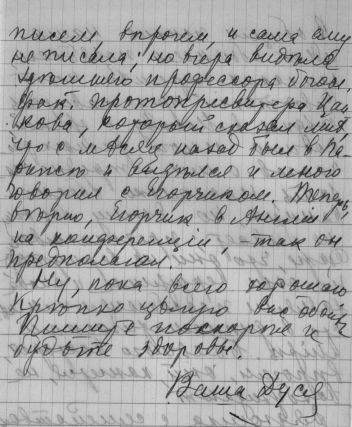 писем, впрочем, и сама ему
не писала; но вчера видѣла
здѣшняго профессора богосл.
фак. протопресвитера Цан-
кова, который сказал мнѣ,
что с мѣсяц назад был в Па-
рижѣ и видѣлся и много
говорил с Егорчиком. Теперь,
вѣрно, Егорчик в Англіи
на конференціи, – так он
предполагал.
Ну, пока всего хорошаго
Крѣпко цѣлую Вас обоих
Пишите поскорѣе и
будьте здоровы.
Ваша Дуся